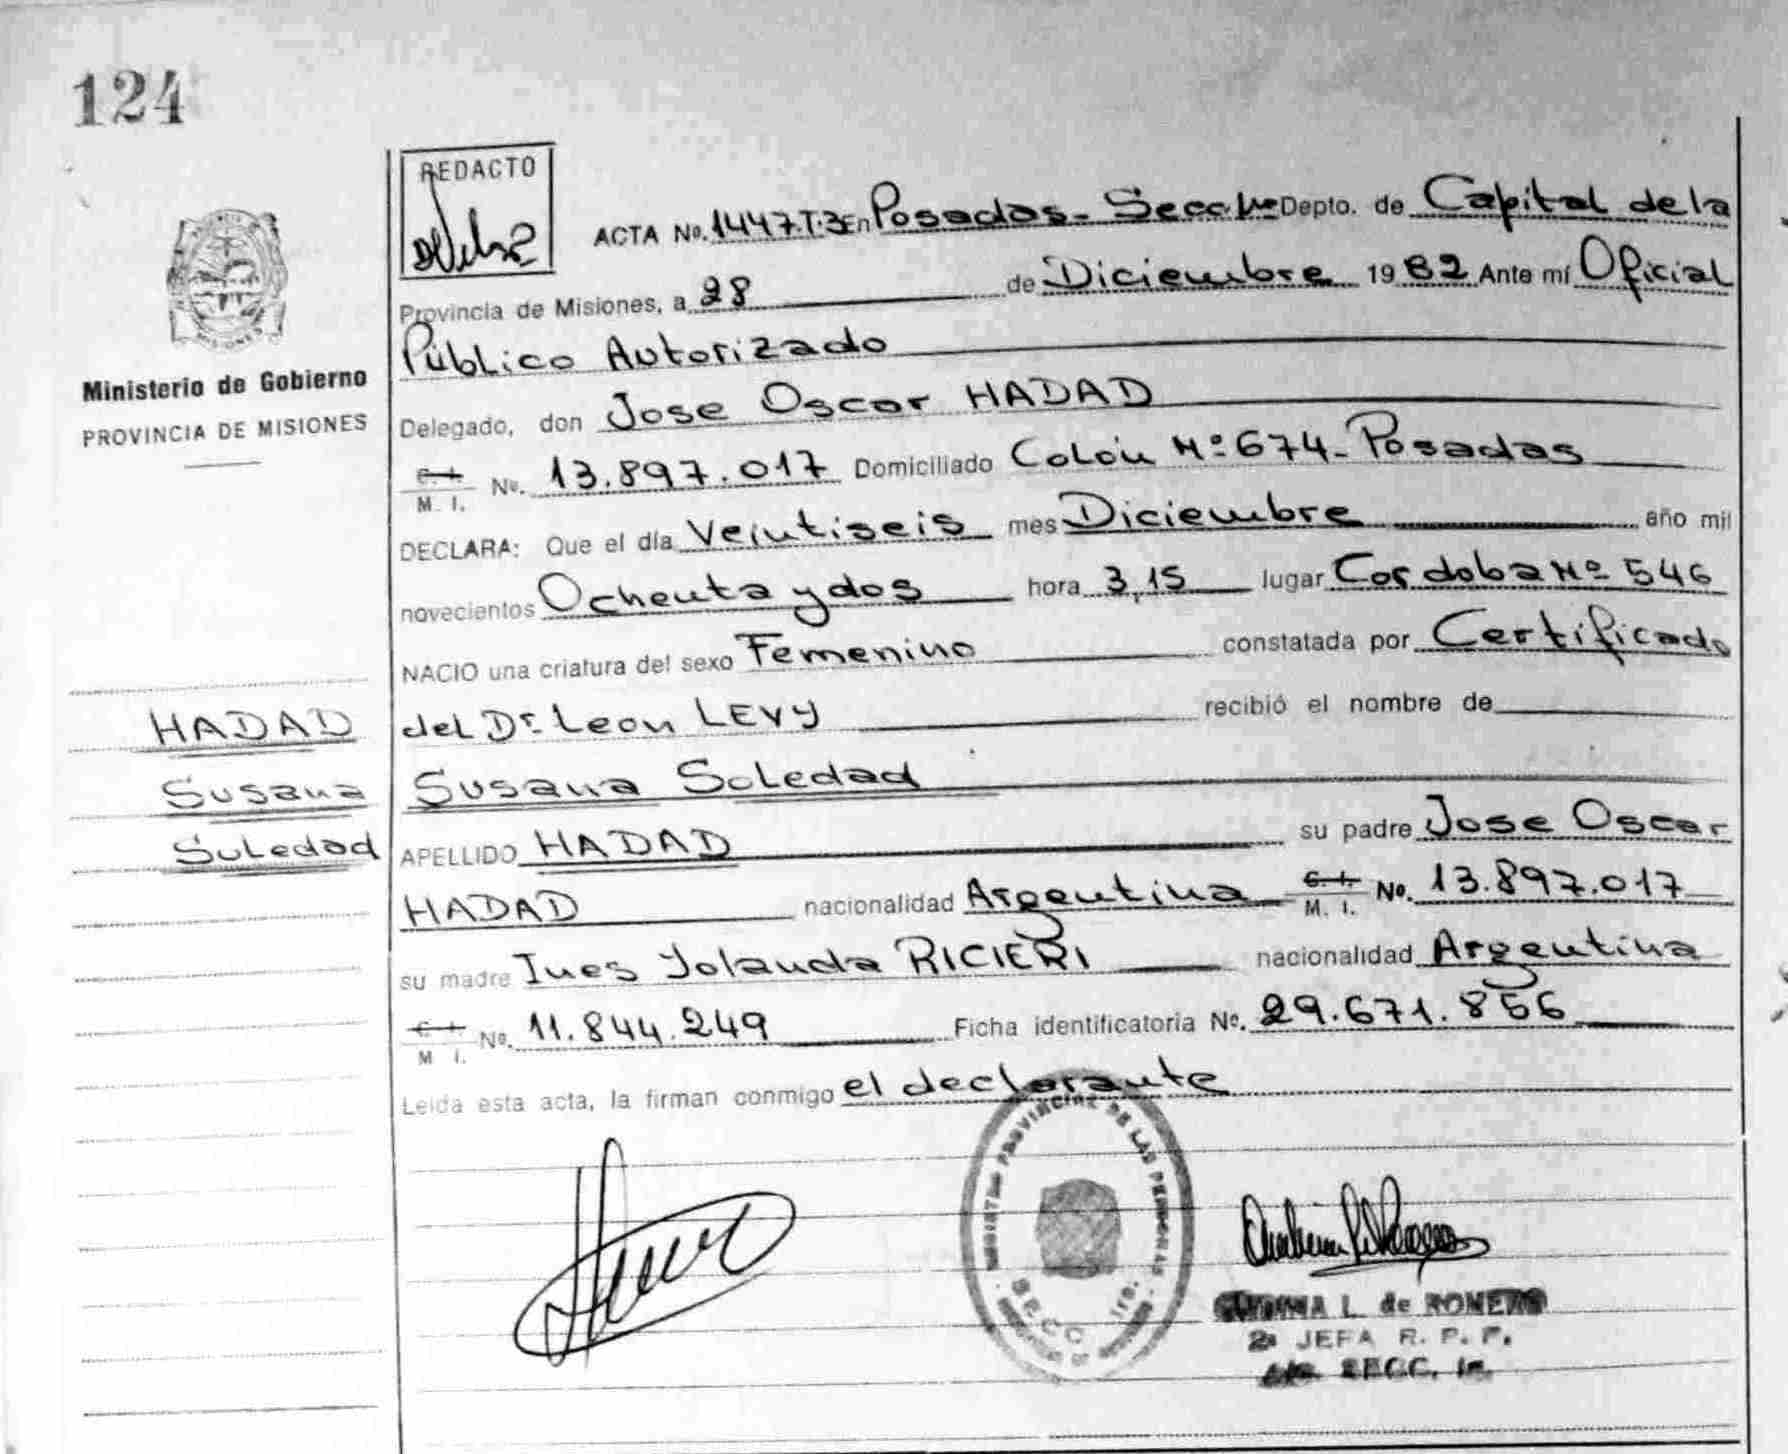 124
REDACTO
ACTA Nº. 1447.T.3 En Posadas - Secc 1ra Depto. de Capital de la
Provincia de Misiones, a 28 de Diciembre 1982 Ante mí Oficial
Público Autorizado
Ministerio de Gobierno
PROVINCIA DE MISIONES
Delegado, don Jose Oscar HADAD
C. I.
M. I. Nº. 13.897.017 Domiciliado Colón Nº 674 - Posadas
DECLARA: Que el día Veintiseis mes Diciembre año mil
novecientos Ochenta y dos hora 3,15 lugar Cordoba Nº 546
NACIO una criatura del sexo Femenino constatada por Certificado
del Dr. Leon LEVY recibió el nombre de
HADAD
Susana
Soledad
Susana Soledad
APELLIDO HADAD su padre Jose Oscar
HADAD nacionalidad Argentina C. I.
M. I. Nº. 13.897.017
su madre Ines Yolanda RICIERI nacionalidad Argentina
C. I.
M I. Nº. 11.844.249 Ficha identificatoria Nº. 29.671.856
Leida esta acta, la firman conmigo el declarante
PROVINCIAL DE LAS PERSONAS
SECC. 1ra.
L. de ROMERO
2a JEFA R. P. P.
SECC. 1a.